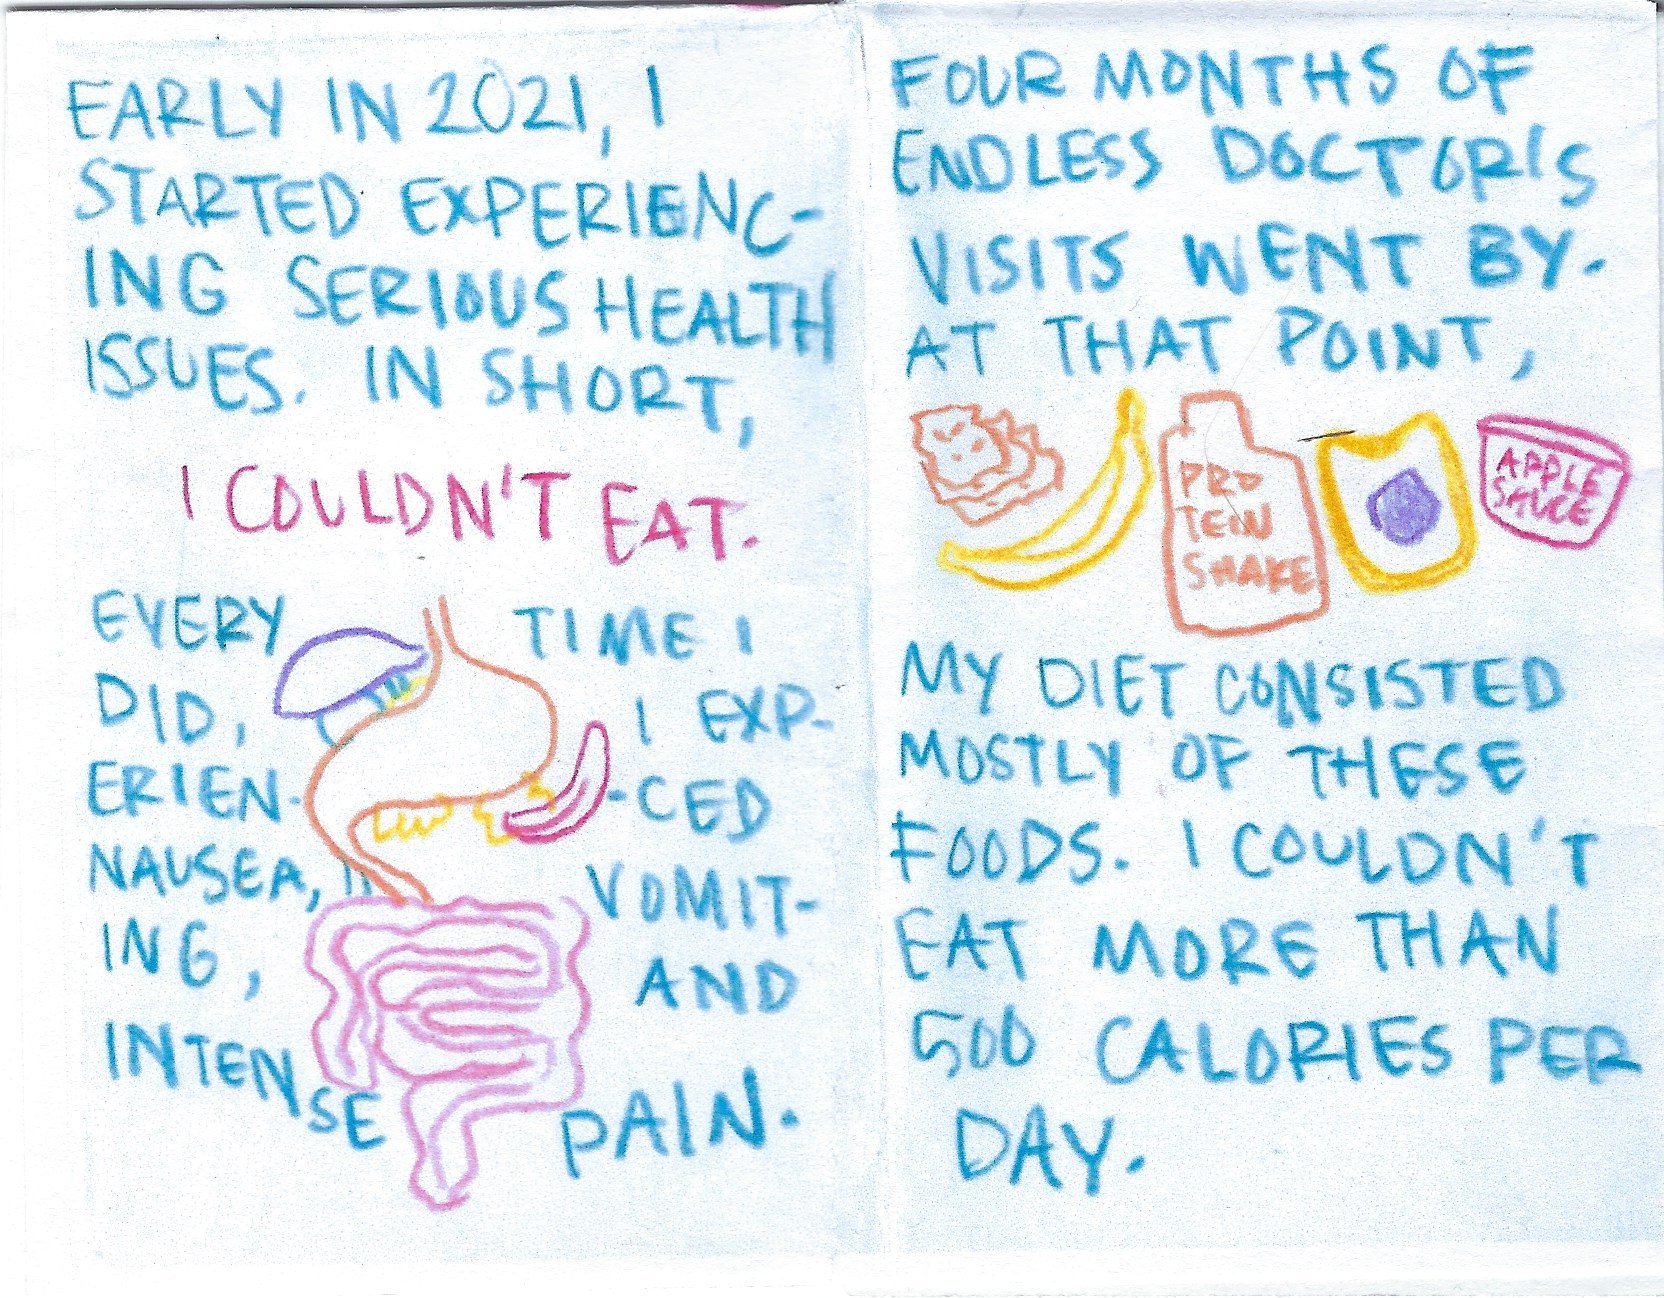 EARLY IN 2021, I
STARTED EXPERIENC-
ING SERIOUS HEALTH
ISSUES. IN SHORT,
I COULDN'T EAT.
EVERY TIME I
DID, I EXP-
ERIEN- -CED
NAUSEA, VOMIT-
ING, AND
INTENSE PAIN.
FOUR MONTHS OF
ENDLESS DOCTOR'S
VISITS WENT BY.
AT THAT POINT,
PRO
TEIN
SHAKE
APPLE
SAUCE
MY DIET CONSISTED
MOSTLY OF THESE
FOODS. I COULDN'T
EAT MORE THAN
500 CALORIES PER
DAY.